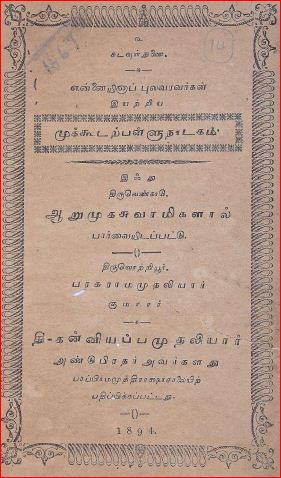 உ
கடவுள் துணை.
என்னயினாப் புலவரவர்கள்
இயற்றிய
முக்கூடற்பள்ளு நாடகம்.
இஃது
திருவெண்காடு.
ஆறுமுகசுவாமிகளால்
பார்வையிடப்பட்டு.
திருவொற்றியூர்.
பரசுராமமுதலியார்
குமாரர்
தி-கன்னியப்பமுதலியார்
அண்டுபிரதர் அவர்களது
பதிப்பிக்கப்பட்டது.
1894.
14